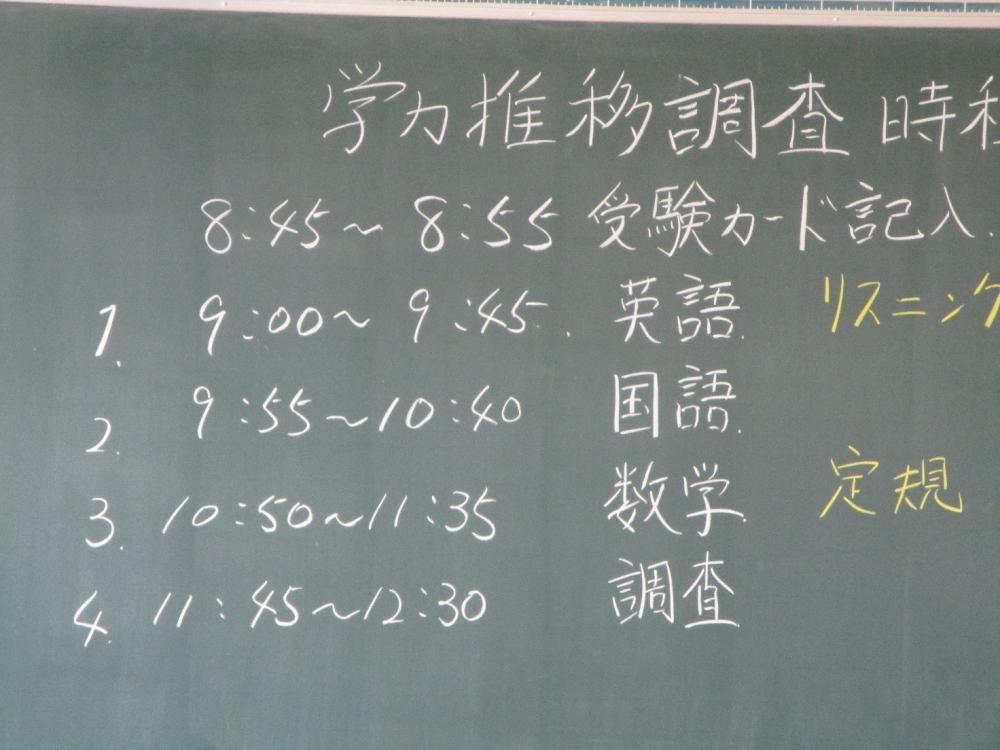 学力推移調査 時
8:45～8:55 受験カード記入.
1. 9:00～9:45. 英語. リスニング
2. 9:55～10:40 国語.
3. 10:50～11:35 数学. 定規
4. 11:45～12:30 調査